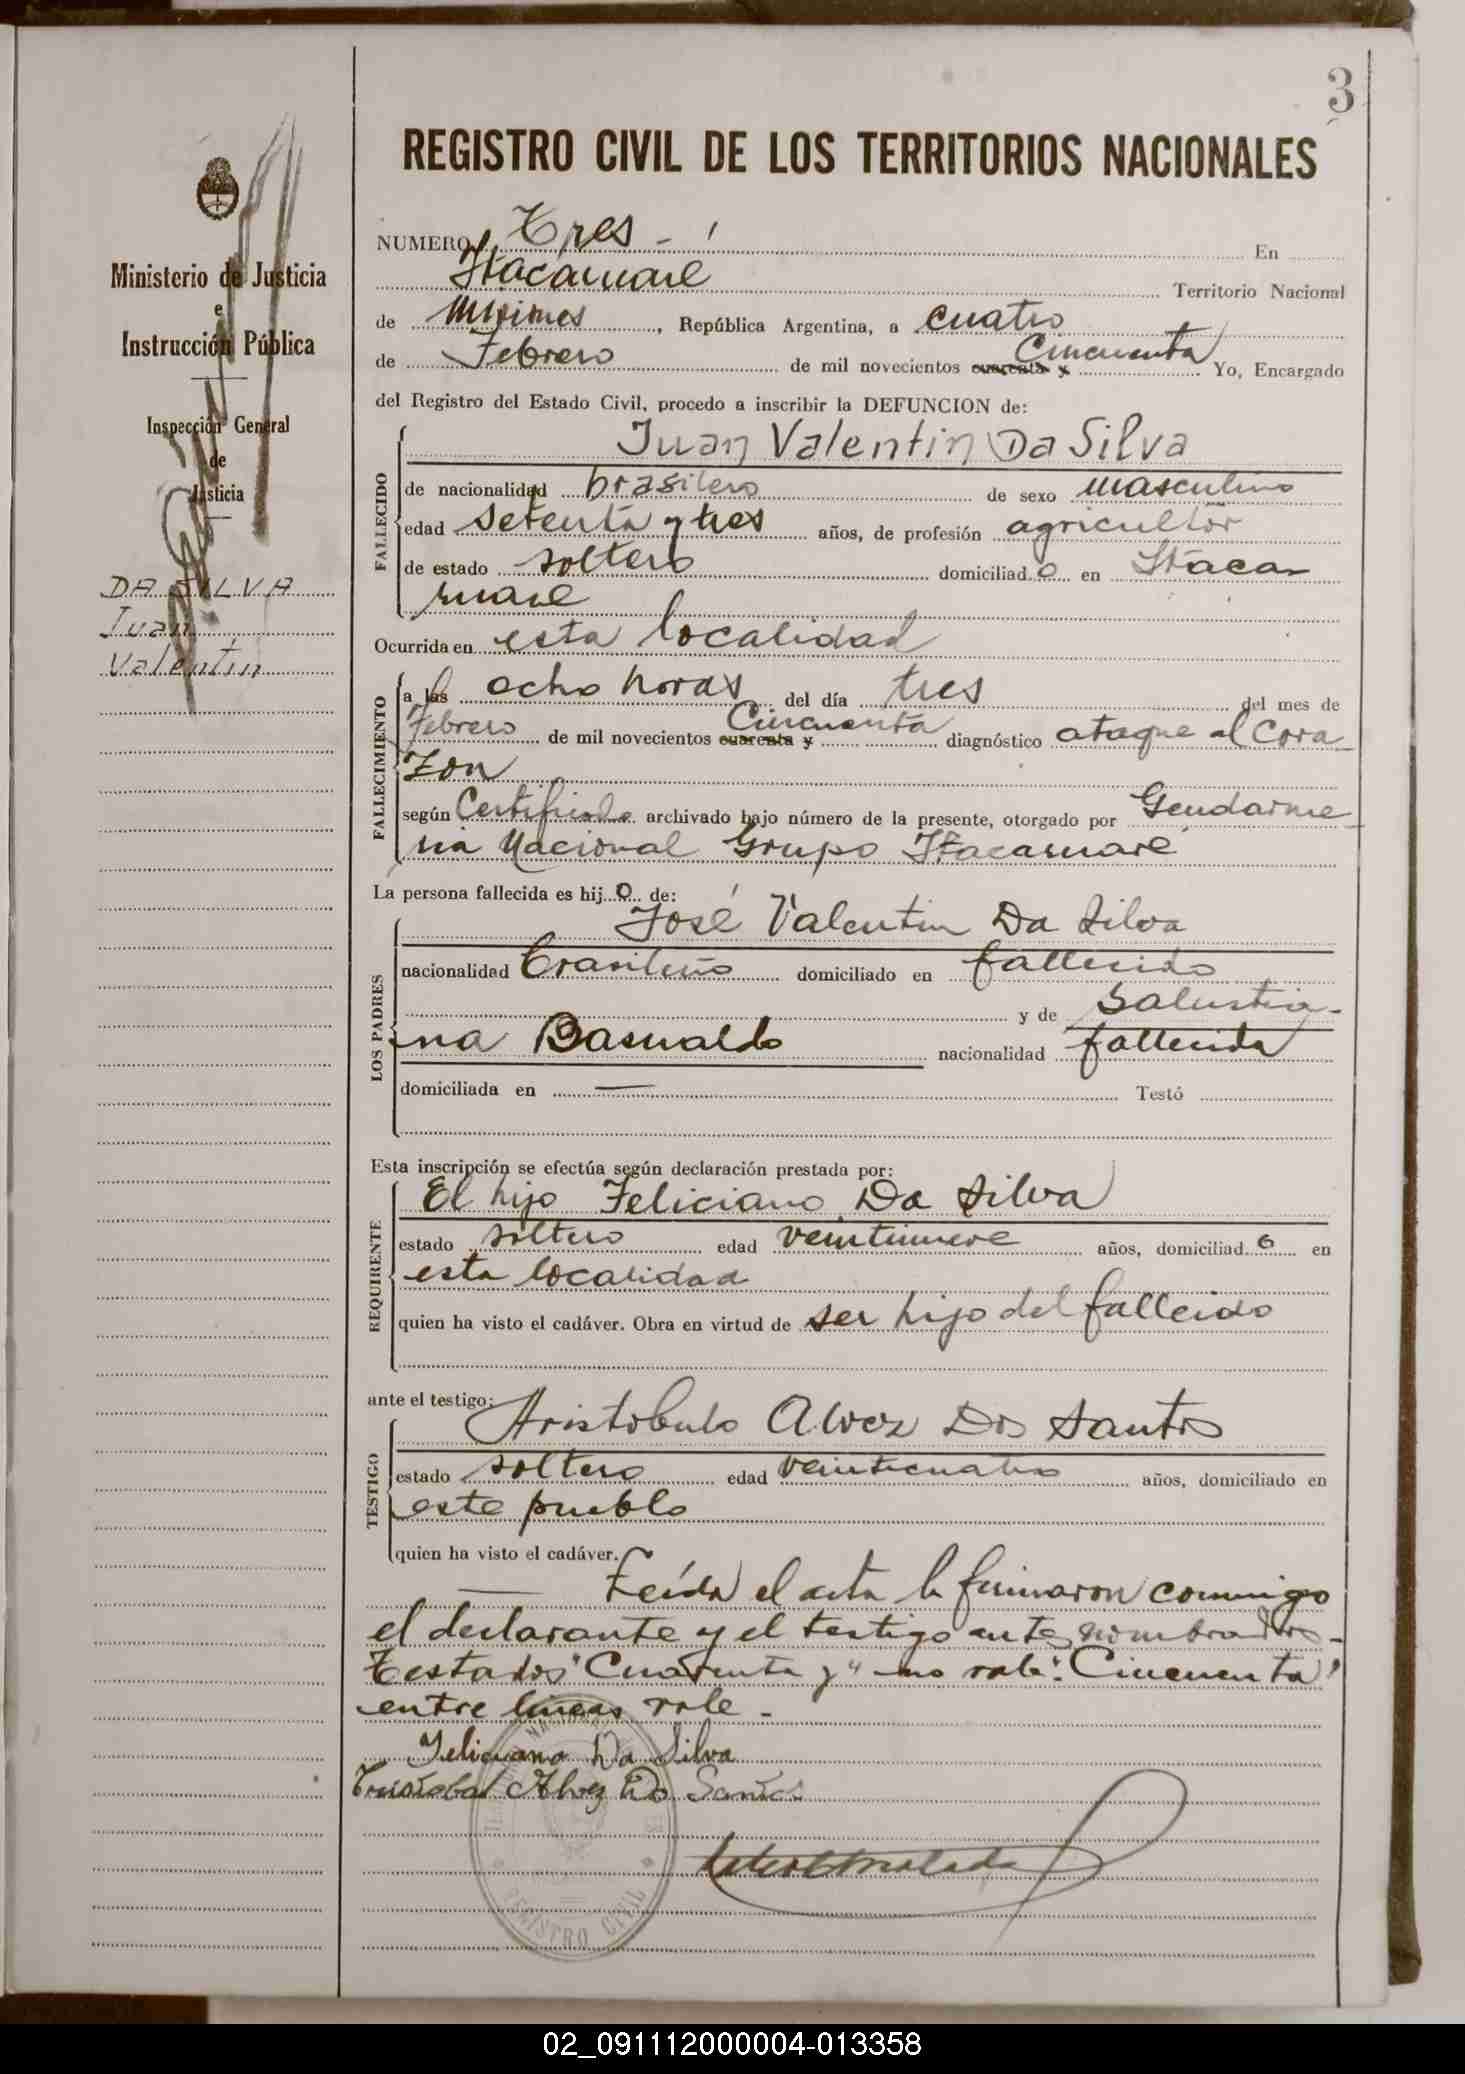 3
REGISTRO CIVIL DE LOS TERRITORIOS NACIONALES
Ministerio de Justicia
e
Instrucción Pública
Inspección General
de
Justicia
DA SILVA
Juan
Valentin
NUMERO Tres - En
Itacaruaré Territorio Nacional
de Misiones, República Argentina, a cuatro
de Febrero de mil novecientos cuarenta y Cincuenta Yo, Encargado
del Registro del Estado Civil, procedo a inscribir la DEFUNCION de:
FALLECIDO
Juan Valentin Da Silva
de nacionalidad brasilero de sexo masculino
edad setenta y tres años, de profesión agricultor
de estado soltero domiciliado en Itaca-
ruaré
Ocurrida en esta localidad
FALLECIMIENTO
a las ocho horas del día tres del mes de
Febrero de mil novecientos cuarenta y Cincuenta diagnóstico ataque al Cora-
zon
según Certificado archivado bajo número de la presente, otorgado por Gendarme-
ria Nacional Grupo Itacaruaré
La persona fallecida es hijo de:
LOS PADRES
José Valentin Da Silva
nacionalidad brasileño domiciliado en fallecido
y de Salustia-
na Basualdo nacionalidad fallecida
domiciliada en — Testó
Esta inscripción se efectúa según declaración prestada por:
REQUIRENTE
El hijo Feliciano Da Silva
estado soltero edad veintinueve años, domiciliado en
esta localidad
quien ha visto el cadáver. Obra en virtud de ser hijo del fallecido
ante el testigo:
TESTIGO
Aristobulo Alvez Dos Santos
estado soltero edad veinticuatro años, domiciliado en
este pueblo
quien ha visto el cadáver.
Leída el acta la firmaron conmigo
el declarante y el testigo ante nombrados-
Testados "Cuarenta y" no vale: "Cincuenta"
entre lineas vale -
Feliciano Da Silva
Alvez Do Santos
REGISTRO CIVIL
02_091112000004-013358